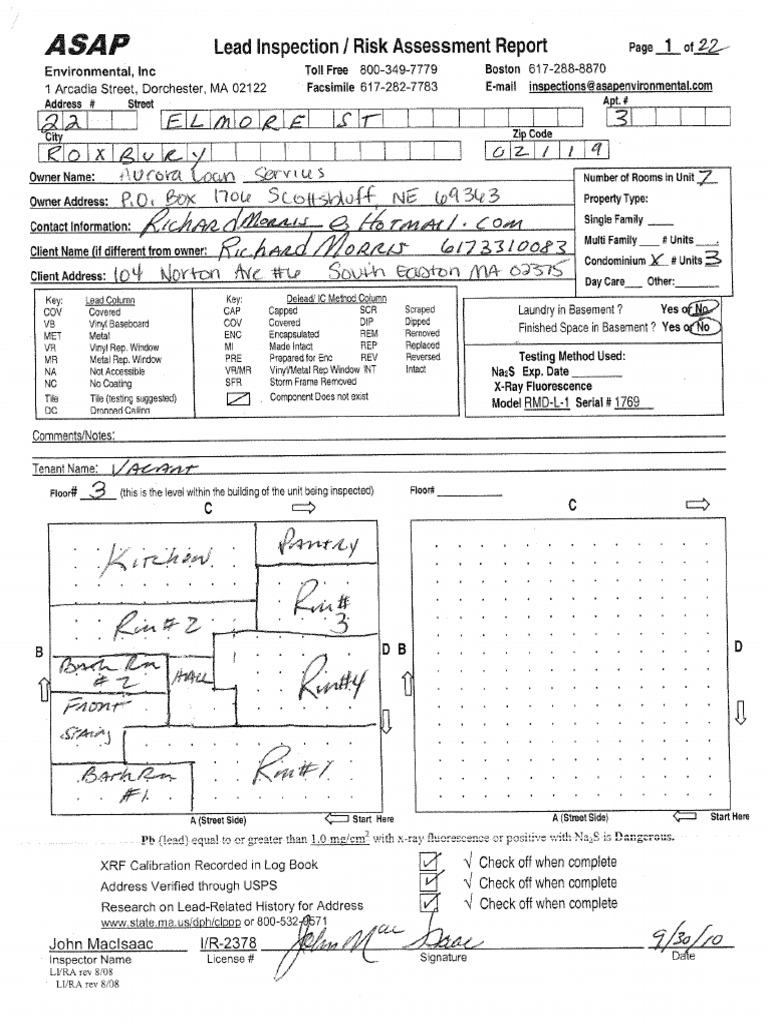 ASAP Lead Inspection / Risk Assessment Report Page 1 of 22
Environmental, Inc Toll Free 800-349-7779 Boston 617-288-8870
1 Arcadia Street, Dorchester, MA 02122 Facsimile 617-282-7783 E-mail inspections@asapenvironmental.com
Address # Street Apt. #
22 ELMORE ST 3
City Zip Code
ROXBURY 02119
Owner Name: Aurora Loan Services Number of Rooms in Unit 7
Owner Address: P.O. Box 1706 Scottsbluff, NE 69363 Property Type:
Contact Information: RichardMorris @ Hotmail.com Single Family
Client Name (if different from owner: Richard Morris 6173310083 Multi Family # Units
Condominium X # Units 3
Client Address: 104 Norton Ave #6 South Easton MA 02375 Day Care Other:
Key: Lead Column Key: Delead/ IC Method Column
COV Covered CAP Capped SCR Scraped
VB Vinyl Baseboard COV Covered DIP Dipped
MET Metal ENC Encapsulated REM Removed
VR Vinyl Rep. Window MI Made Intact REP Replaced
MR Metal Rep. Window PRE Prepared for Enc REV Reversed
NA Not Accessible VR/MR Vinyl/Metal Rep Window INT Intact
NC No Coating SFR Storm Frame Removed
Tile Tile (testing suggested) Component Does not exist
DC Dropped Ceiling
Laundry in Basement ? Yes or No
Finished Space in Basement ? Yes or No
Testing Method Used:
Na₂S Exp. Date
X-Ray Fluorescence
Model RMD-L-1 Serial # 1769
Comments/Notes:
Tenant Name: Vacant
Floor# 3 (this is the level within the building of the unit being inspected) Floor#
C C
Kitchen Pantry
Rm# 3
Rm# 2
B D B D
Bath Rm # 2 Hall Rm#4
Front Stairs
Bath Rm #1. Rm#1
A (Street Side) Start Here A (Street Side) Start Here
Pb (lead) equal to or greater than 1.0 mg/cm² with x-ray fluorescence or positive with Na₂S is Dangerous.
XRF Calibration Recorded in Log Book ✓ √ Check off when complete
Address Verified through USPS ✓ √ Check off when complete
Research on Lead-Related History for Address ✓ √ Check off when complete
www.state.ma.us/dph/clppp or 800-532-9571
John MacIsaac I/R-2378 John MacIsaac 9/30/10
Inspector Name License # Signature Date
LI/RA rev 8/08
LI/RA rev 8/08